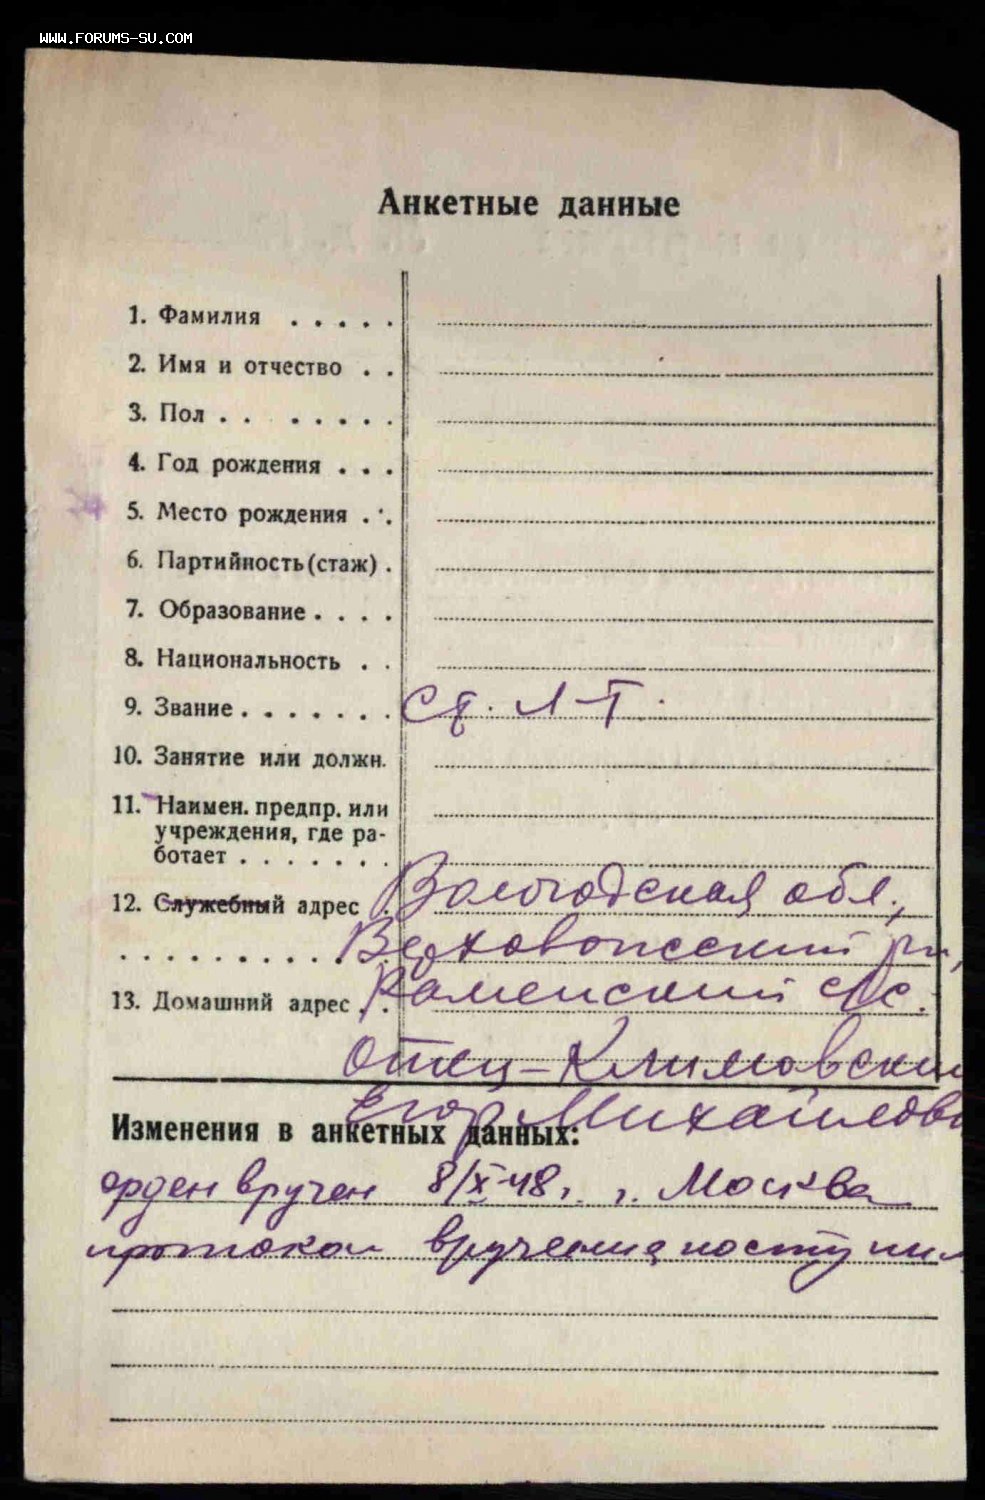 WWW.FORUMS-SU.COM
Анкетные данные
1. Фамилия . . . . .
2. Имя и отчество . .
3. Пол . . . . . . .
4. Год рождения . . .
5. Место рождения . .
6. Партийность (стаж) .
7. Образование . . . .
8. Национальность . .
9. Звание . . . . . . . Ст. л-т.
10. Занятие или должн.
11. Наимен. предпр. или
учреждения, где ра-
ботает . . . . . . .
12. Служебный адрес . Вологодская обл.,
Верховажский рн,
13. Домашний адрес . . Каменский с/с.
отец - Климовский
Егор Михайлови
Изменения в анкетных данных:
орден вручен 8/X-48г. г. Москва
протокол вручения поступил